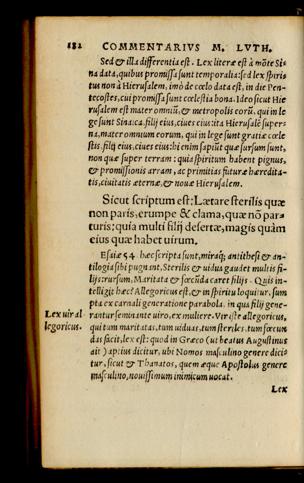 182 COMMENTARIUS M. LVTH.
Sed & illa differentia est. Lex literæ est à mõte Si-
na data, quibus promissa sunt temporalia: sed lex spiri
tus non à Hierusalem, imò de cœlo data est, in die Pen-
tecostes, cui promissa sunt cœlestia bona. Ideo sicut Hie
rusalem est mater omniũ, & metropolis eorũ, qui in le
ge sunt Sina: ica filij eius, ciues eius: ita Hierusalẽ super-
na, mater omnium eorum, qui in lege sunt gratiæ cœle
stis filij eius, ciues eius: hi enim sapiũt quæ sursum sunt,
non quæ super terram: quia spiritum habent pignus,
& promissionis arram, ac primitias futuræ hæredita-
tis, ciuitatis æternæ, & nouæ Hierusalem.
Sicut scriptum est: Lætare sterilis quæ
non paris, erumpe & clama, quæ nõ par-
turis: quia multi filij desertæ, magis quàm
eius quæ habet uirum.
Esaiæ 54 hæc scripta sunt, miraq́; antithesi & an-
tilogia sibi pugnant, Sterilis & uidua gaudet multis fi-
lijs: rursum, Maritata & fœcũda caret filijs. Quis in-
telligit hæc? Allegoricus est, & in spiritu loquitur, sum
pta ex carnali generatione parabola, in qua filij gene-
Lex uir al-
legoricus.
rantur seminante uiro, ex muliere. Vir iste allegoricus,
qui tum maritatas, tum uiduas, tum steriles, tum fœcun
das facit, lex est: quod in Græco (ut beatus Augustinus
ait) aptius dicitur, ubi Nomos masculino genere dici-
tur, sicut & Thanatos, quem æque Apostolus genere
masculino, nouissimum inimicum uocat.
Lex